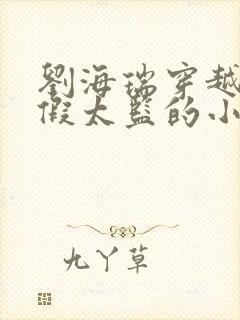 劉海瑞穿越
假太監的小
九丫草